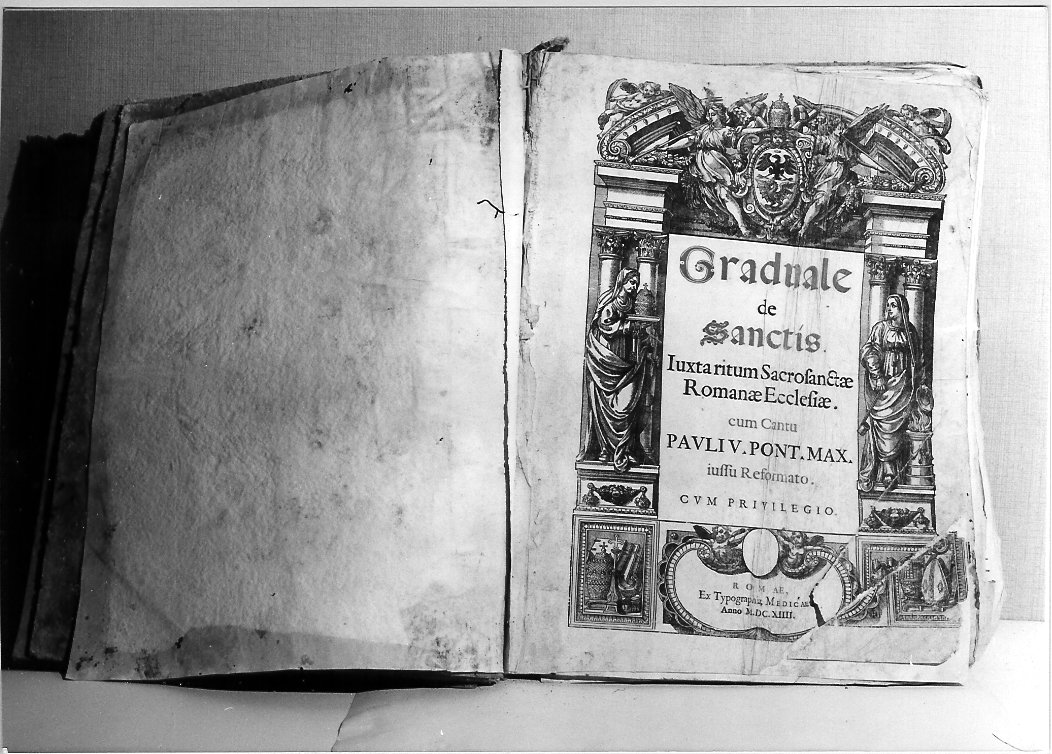 Graduale
de
Sanctis.
Iuxta ritum Sacroſanctæ
Romanæ Eccleſiæ.
cum Cantu
PAVLI V. PONT. MAX.
iuſſu Reformato.
CVM PRIVILEGIO.
ROMAE,
Ex Typographia MEDICÆA
Anno M.DC.XIIII.